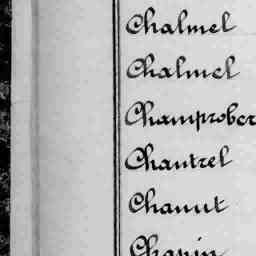 Chalmel
Chalmel
Champrober
Chantrel
Chanut
Chapin